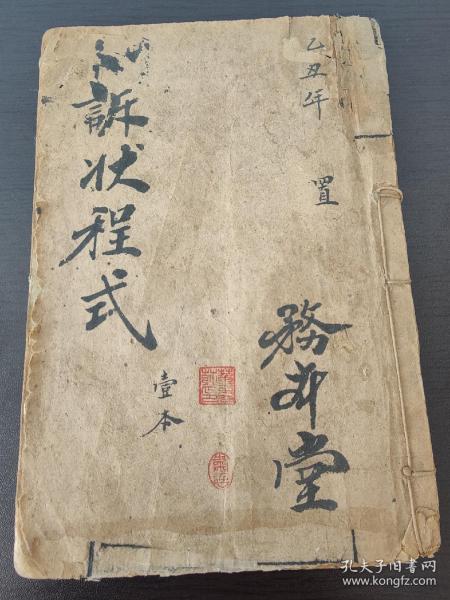 乙丑年 置
務本堂
訴状程式
壹本
孔夫子旧书网
www.kongfz.com